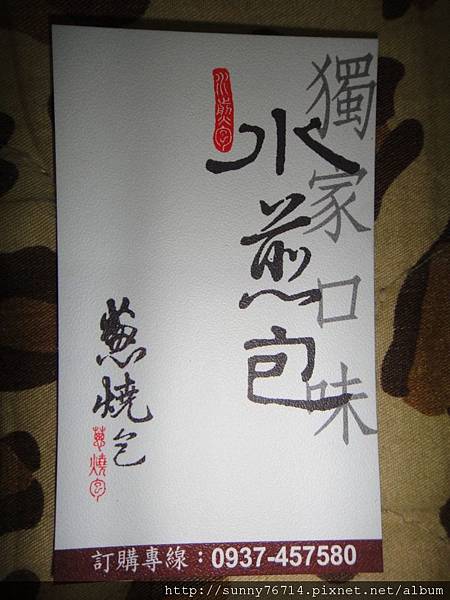 獨家口味
水煎包
水煎包
蔥燒包
蔥燒包
訂購專線：0937-457580
http://sunny76714.pixnet.net/album